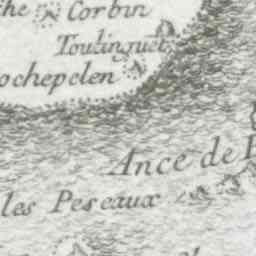 he Corbin
Toulinguet
ochepelen
Ance de
les Peseaux